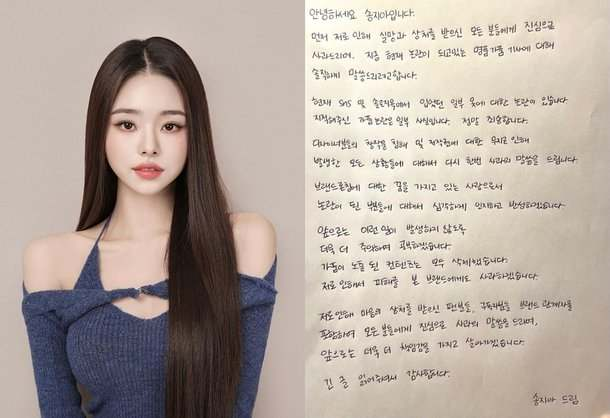 안녕하세요 송지아입니다.
먼저 저로 인해 실망과 상처를 받으신 모든 분들에게 진심으로
사과드리며, 지금 현재 논란이 되고있는 명품가품 기사에 대해
솔직하게 말씀드리려고합니다.
현재 SNS 및 솔로지옥에서 입었던 일부 옷에 대한 논란이 있습니다.
지적해주신 가품논란은 일부 사실입니다. 정말 죄송합니다.
디자이너분들의 창작물 침해 및 저작권에 대한 무지로 인해
발생한 모든 상황들에 대해서 다시 한번 사과의 말씀을 드립니다.
브랜드론칭에 대한 꿈을 가지고 있는 사람으로서
논란이 된 부분들에 대해서 심각하게 인지하고 반성하겠습니다.
앞으로는 이런 일이 발생하지 않도록
더욱 더 주의하며 공부하겠습니다.
가품이 노출 된 컨텐츠는 모두 삭제했습니다.
저로 인해서 피해를 본 브랜드에게도 사과하겠습니다.
저로인해 마음의 상처를 받으신 팬분들, 구독자분들 브랜드 관계자를
포함하여 모든분들에게 진심으로 사과의 말씀을 드리며,
앞으로는 더욱 더 책임감을 가지고 살아가겠습니다.
긴 글 읽어주셔서 감사합니다.
송지아 드림